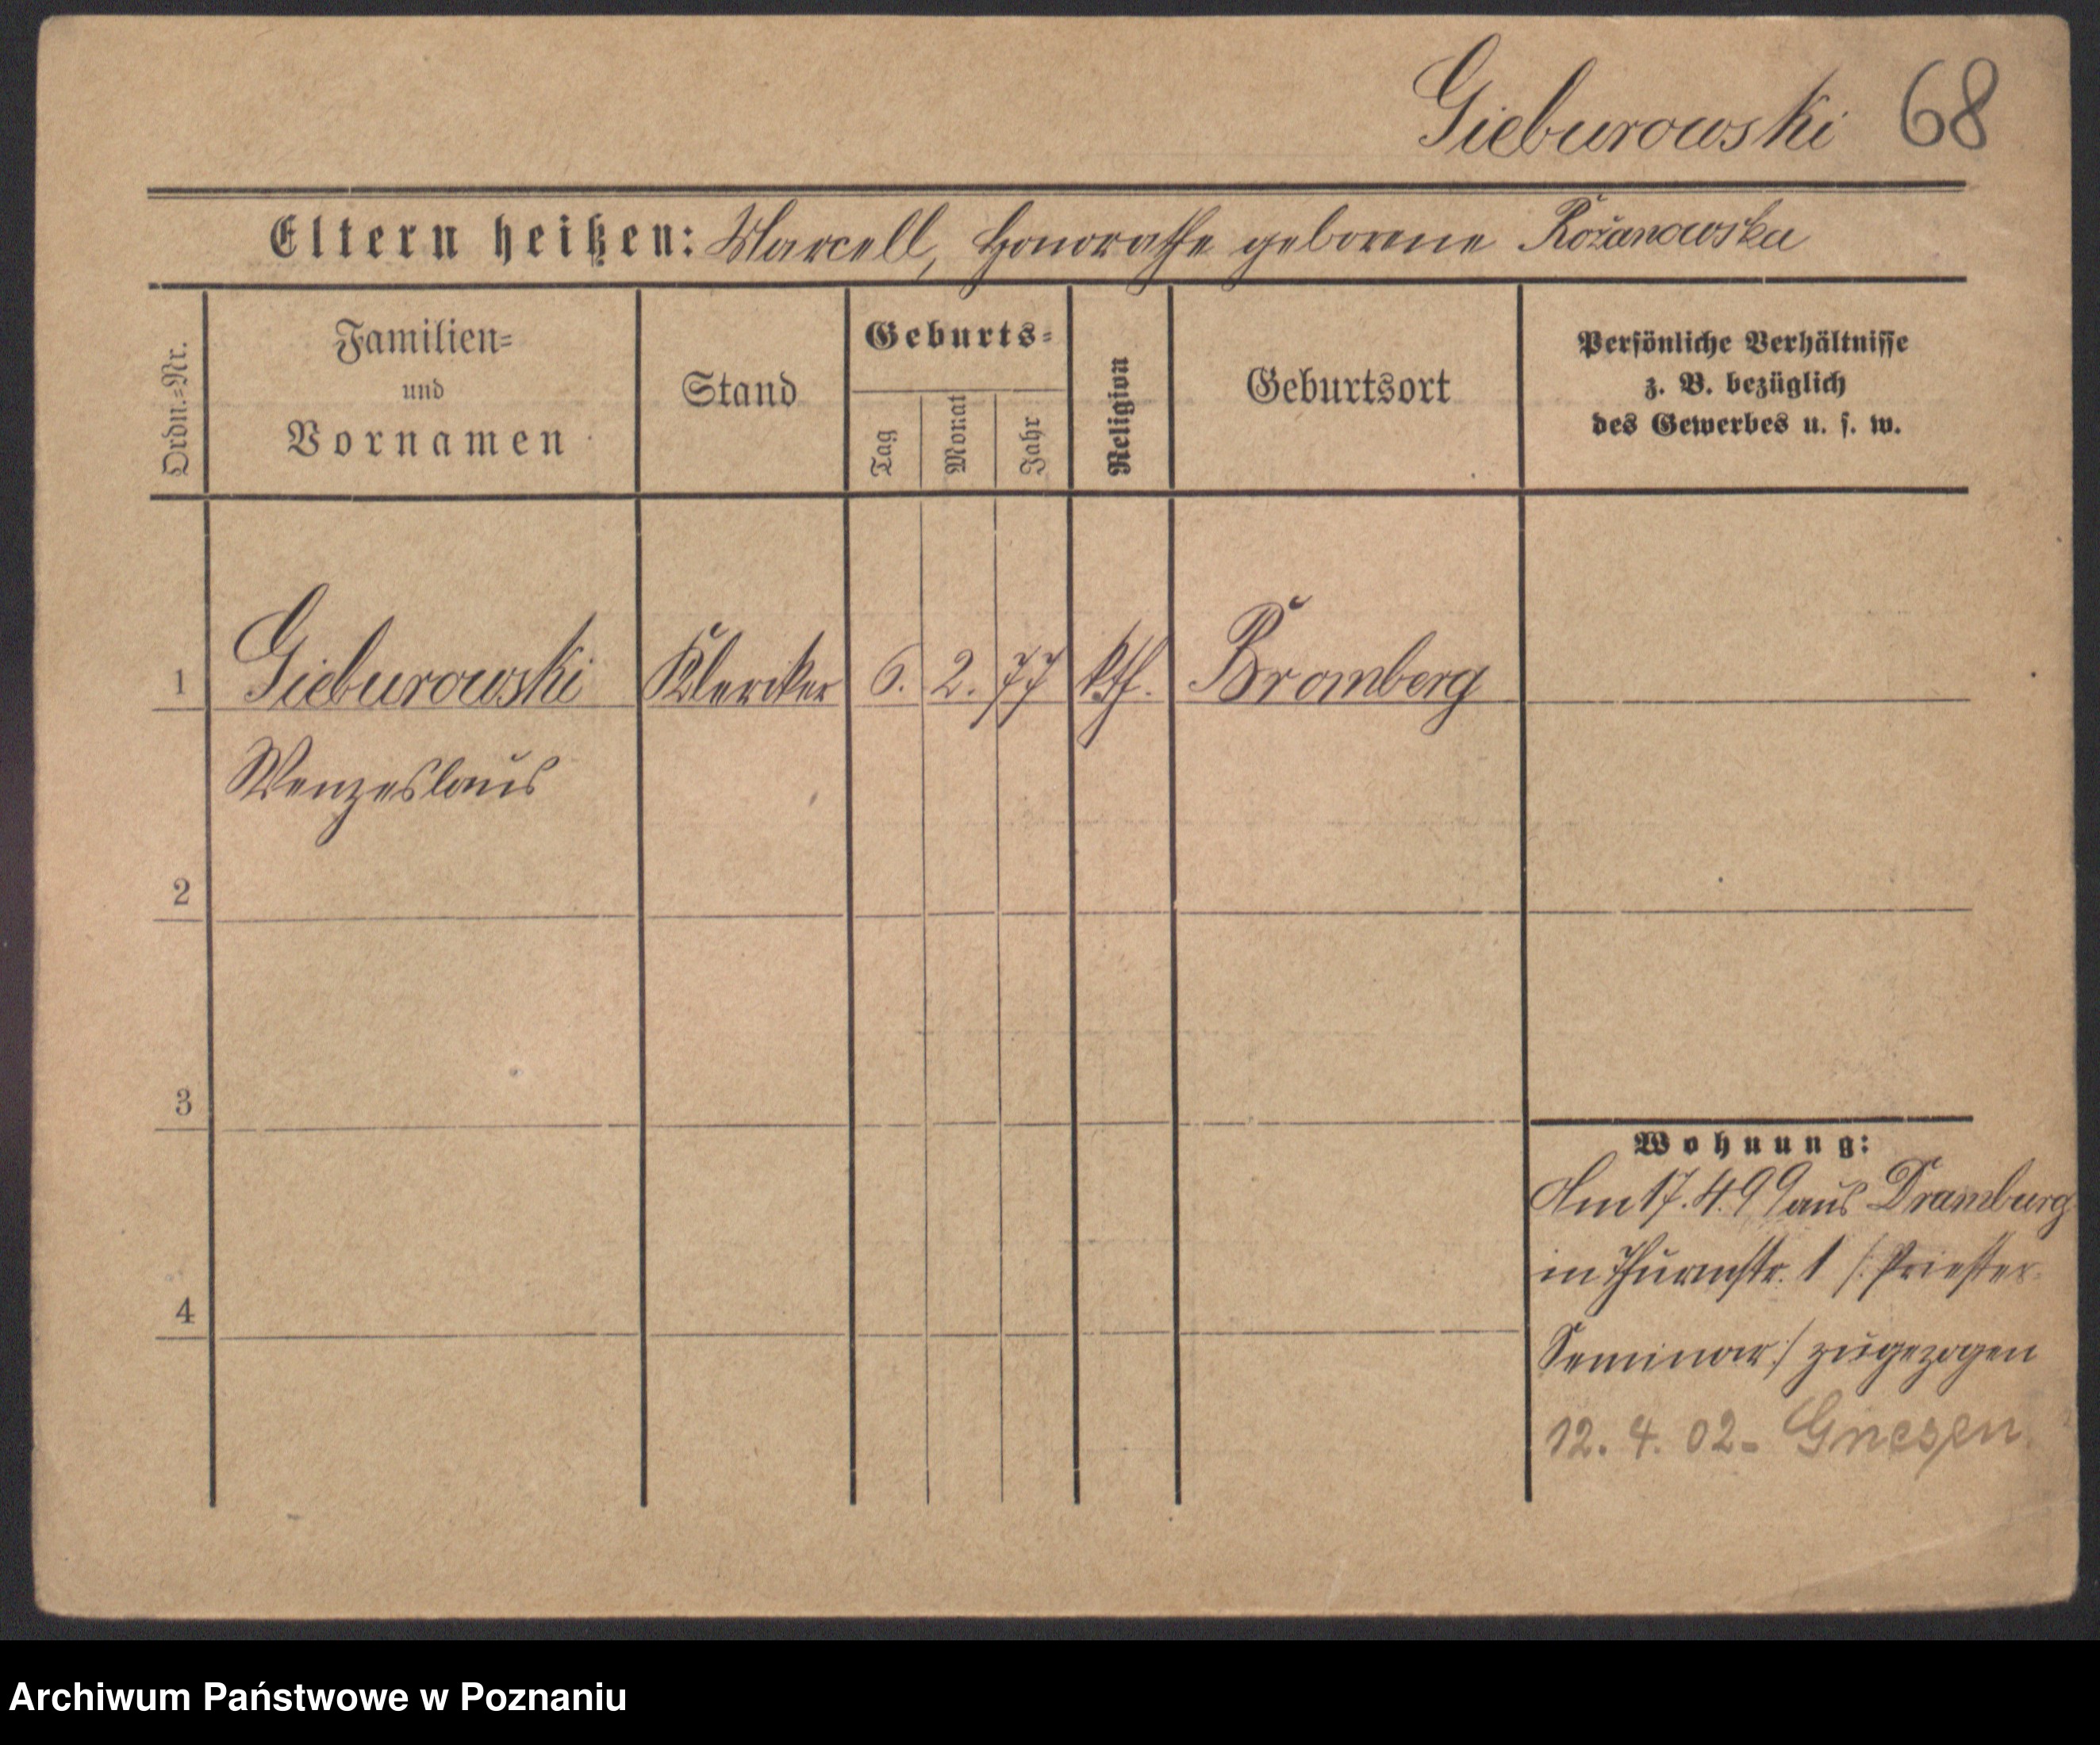 Gieburowski 68
Eltern heißen: Marcell, Honorathe geborene Rožanowska
Ordn.=Nr.
Familien=
und
Vornamen
Stand
Geburts=
Tag
Monat
Jahr
Religion
Geburtsort
Persönliche Verhältnisse
z. B. bezüglich
des Gewerbes u. s. w.
1 Gieburowski Kleriker 6. 2. 77 kth. Bromberg
Wenzeslaus
2
3
Wohnung:
Am 17.4.99 aus Dramburg
in Thurmstr. 1 /: Priester-
4
Seminar :/ zugezogen
12. 4. 02- Gnesen
Archiwum Państwowe w Poznaniu